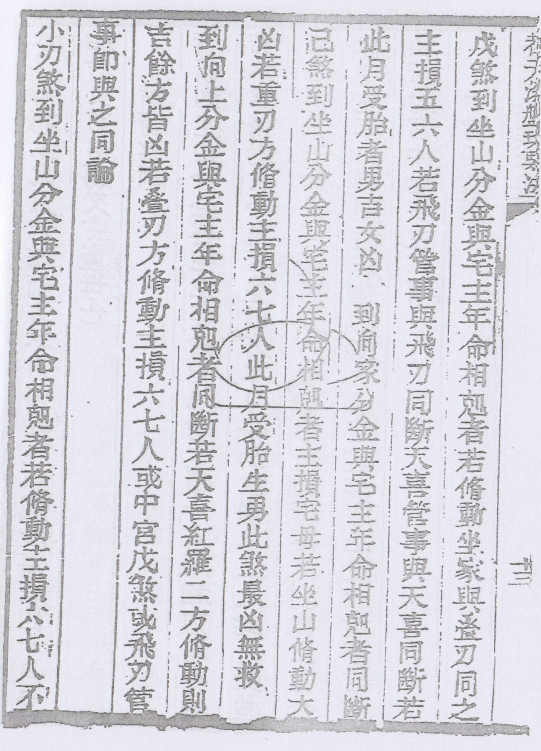 戊煞到坐山分金與宅主年命相尅者若脩動坐家與叠刃同之
主損五六人若飛刃管事與飛刃同斷天喜管事與天喜同斷若
此月受胎者男吉女凶 到向家分金與宅主年命相尅者同斷
己煞到坐山分金與宅主年命相尅者主損宅母若坐山脩動大
凶若重刃方脩動主損六七人此月受胎生男此煞最凶無救
到向上分金與宅主年命相尅者同斷若天喜紅羅二方脩動則
吉餘方皆凶若叠刃方脩動主損六七人或中宮戊煞或飛刃管
事即與之同論
小刃煞到坐山分金與宅主年命相尅者若脩動主損六七人不